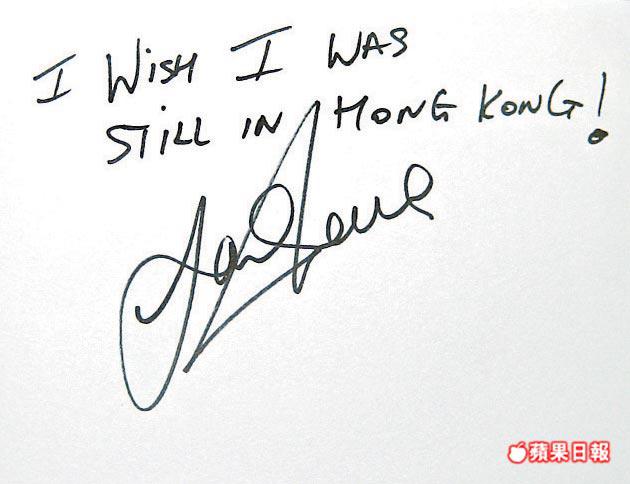 I WISH I WAS
STILL IN HONG KONG!
蘋果日報